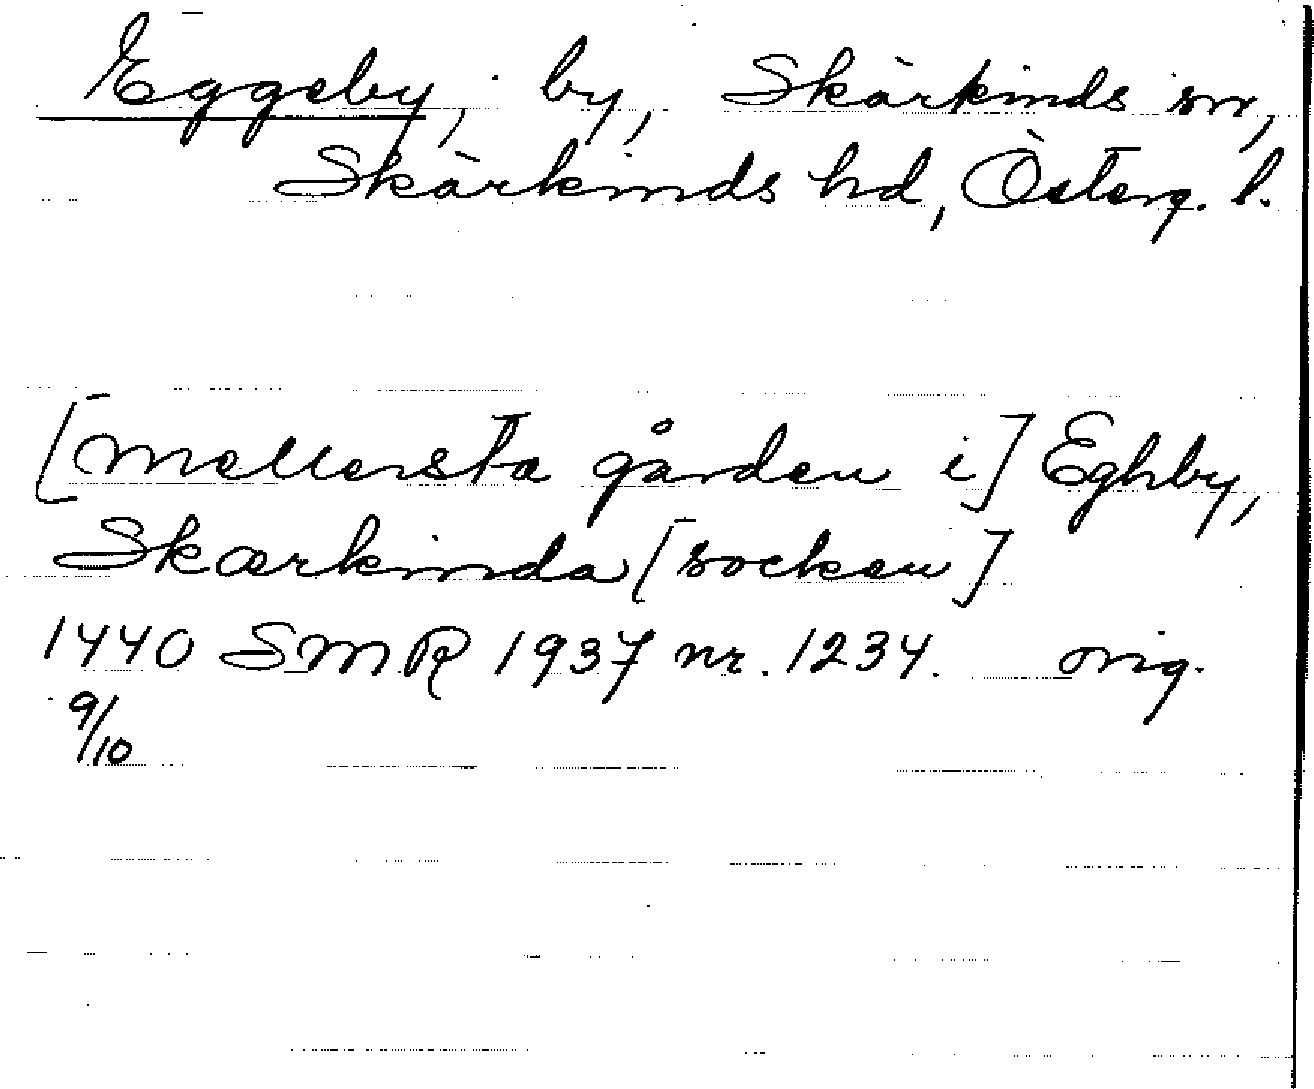 Eggeby, by, Skärkinds sn,
Skärkinds hd, Österg. l.
[mellersta gården i] Eghby,
Skærkinda [socken]
1440 SMR 1937 nr. 1234. orig.
9/10